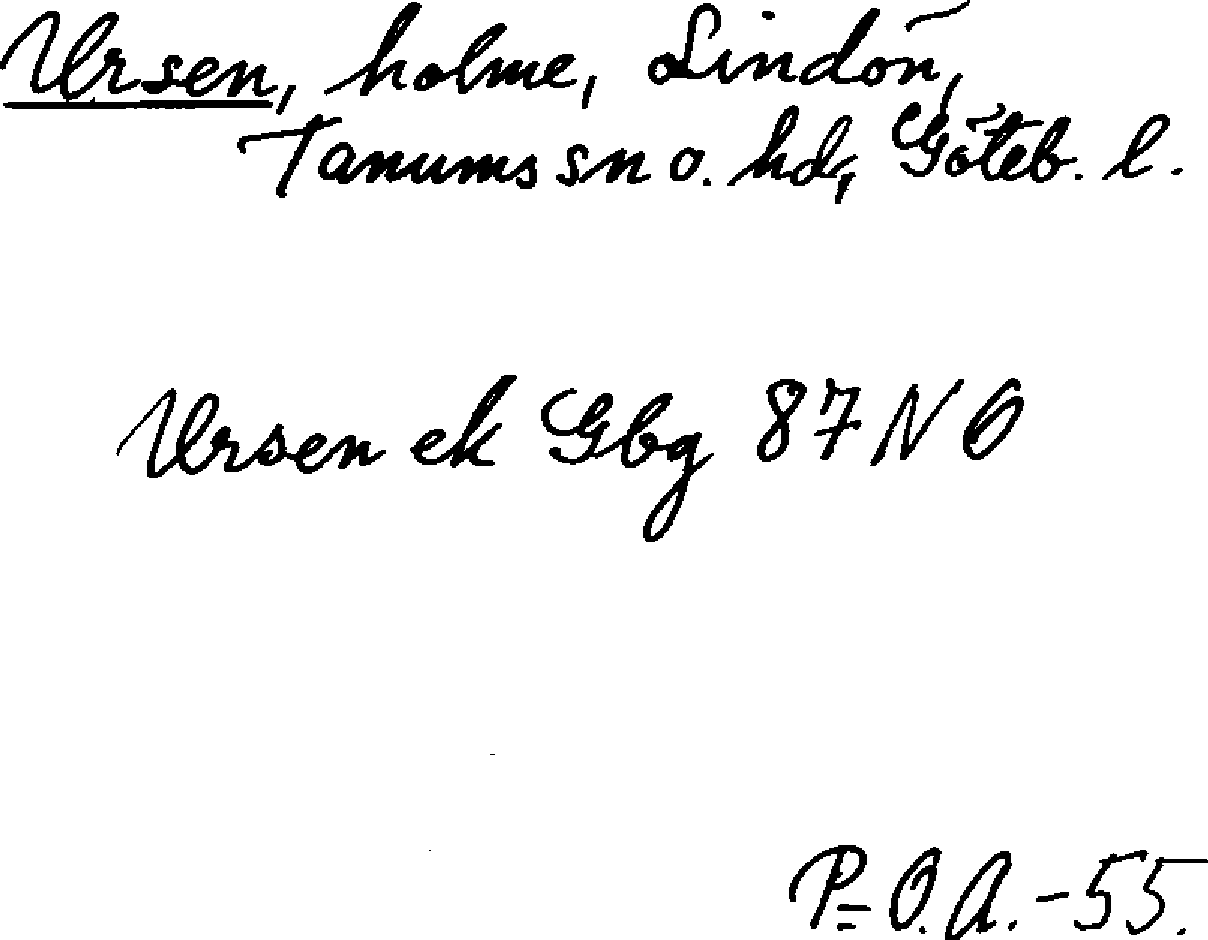 Ursen, holme, Lindön,
Tanums sn o. hd, Göteb. l.
Ursen ek Gbg 87 NO
P=O.A.-55.